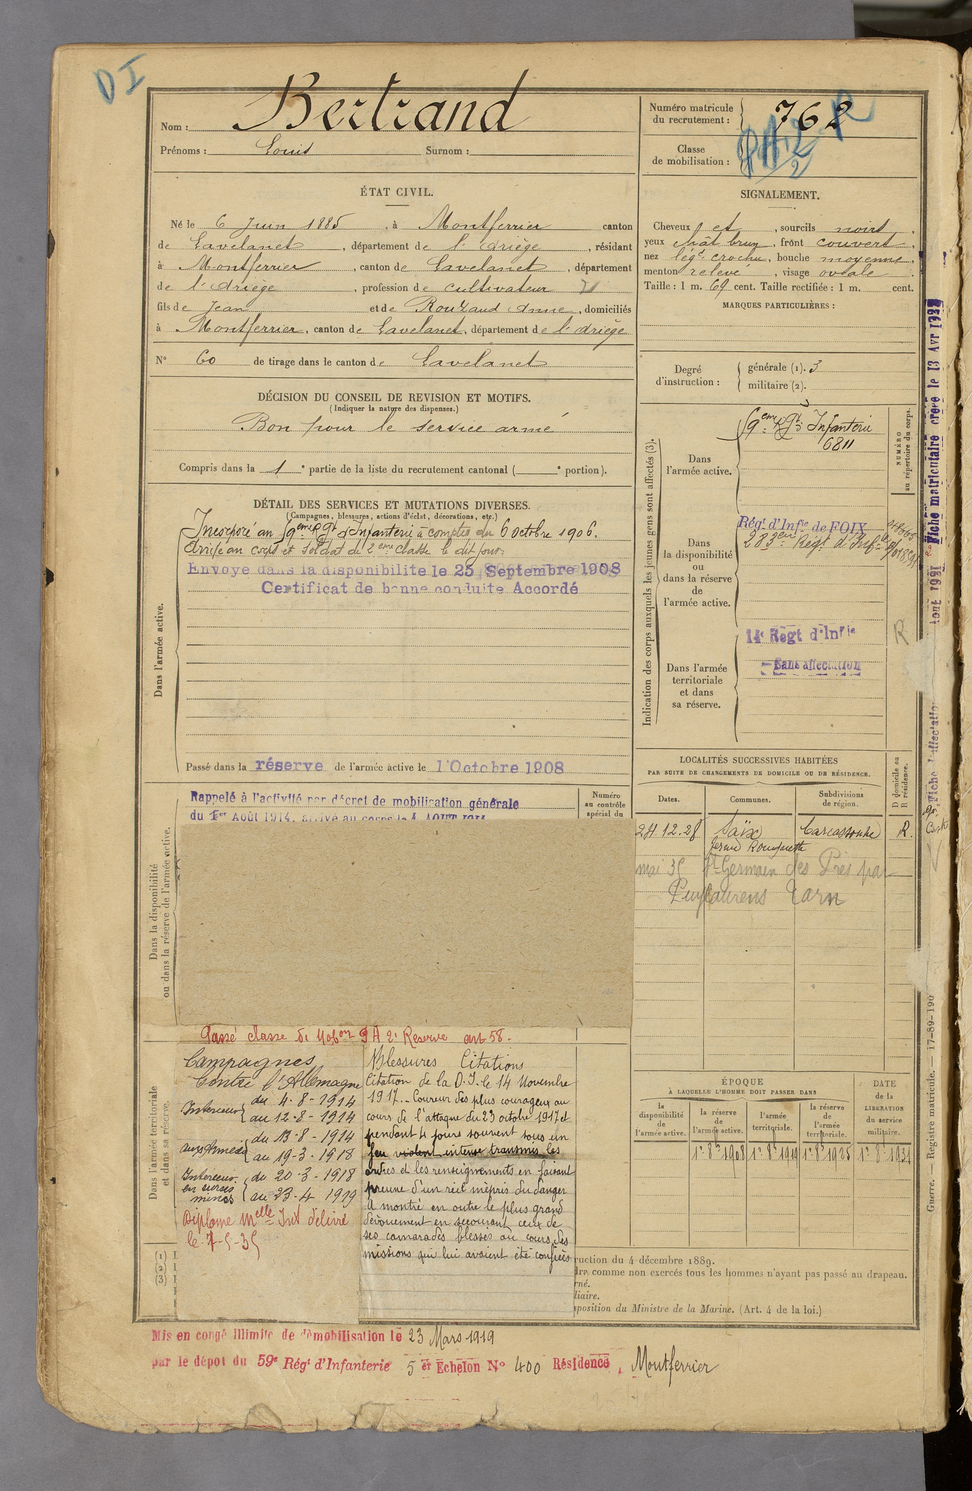 DI
Nom : Bertrand
Prénoms : Louis Surnom :
Numéro matricule du recrutement : 762
Classe de mobilisation :
ÉTAT CIVIL.
Né le 6 Juin 1885, à Montferrier canton
de Lavelanet, département de l'Ariège, résidant
à Montferrier, canton de Lavelanet, département
de l'Ariège, profession de cultivateur
fils de Jean et de Rouzaud Anne, domiciliés
à Montferrier, canton de Lavelanet, département de l'Ariège
N° 60 de tirage dans le canton de Lavelanet
SIGNALEMENT.
Cheveux et, sourcils noirs,
yeux chât brun, front couvert,
nez légt crochu, bouche moyenne,
menton relevé, visage ovale
Taille : 1 m. 69 cent. Taille rectifiée : 1 m. cent.
MARQUES PARTICULIÈRES :
Degré d'instruction : générale (1). 3
militaire (2).
DÉCISION DU CONSEIL DE REVISION ET MOTIFS.
(Indiquer la nature des dispenses.)
Bon pour le service armé
Compris dans la 1e partie de la liste du recrutement cantonal ( e portion).
DÉTAIL DES SERVICES ET MUTATIONS DIVERSES.
(Campagnes, blessures, actions d'éclat, décorations, etc.)
Dans l'armée active.
Incorporé au 59eme Rgt d'Infanterie à compter du 6 octobre 1906.
Arrivé au corps et soldat de 2eme classe le dit jour.
Envoyé dans la disponibilité le 25 Septembre 1908
Certificat de bonne conduite Accordé
Passé dans la réserve de l'armée active le 1 Octobre 1908
Indication des corps auxquels les jeunes gens sont affectés (3).
NUMÉRO au répertoire du corps.
Dans l'armée active.
59em Rgt Infanterie
6811
Dans la disponibilité ou dans la réserve de l'armée active.
Régt d'Infie de FOIX
283em Régt d'Infie
Dans l'armée territoriale et dans sa réserve.
14e Regt d'Infie
Sans affectation
R
LOCALITÉS SUCCESSIVES HABITÉES
PAR SUITE DE CHANGEMENTS DE DOMICILE OU DE RÉSIDENCE.
Dates. Communes. Subdivisions de région. D domicile ou R résidence.
24.12.28 Saïx Carcassonne R.
mai 35 St Germain des Prés par
Puylaurens Tarn
Dans la disponibilité ou dans la réserve de l'armée active.
Rappelé à l'activité par décret de mobilisation générale
du 1er Août 1914, arrivé au corps le 4 AOUT 1914
Numéro au contrôle spécial du
Passé classe de Mobon 9 A 2e Réserve art 58.
Dans l'armée territoriale et dans sa réserve.
Campagnes
Contre l'Allemagne
Intérieur du 4-8-1914
au 12-8-1914
aux Armées du 13-8-1914
au 19-3-1918
Intérieur du 20-3-1918
au 23-4-1919
Diplôme Melle Int délivré
le 7-5-35
Blessures Citations
Citation de la D.I. le 14 Novembre
1917. Coureur des plus courageux au
cours de l'attaque du 23 octobre 1917 et
pendant 4 jours souvent sous un
feu violent intense transmis les
ordres et les renseignements en faisant
preuve d'un réel mépris du danger
A montré en outre le plus grand
dévouement en secourant ceux de
ses camarades blessés au cours des
missions qui lui avaient été confiées
ÉPOQUE
À LAQUELLE L'HOMME DOIT PASSER DANS
DATE de la LIBÉRATION du service militaire.
la disponibilité de l'armée active. la réserve de l'armée active. l'armée territoriale. la réserve de l'armée territoriale.
(1)
(2)
(3)
ruction du 4 décembre 1889.
dre comme non exercés tous les hommes n'ayant pas passé au drapeau.
rné.
liaire.
sposition du Ministre de la Marine. (Art. 4 de la loi.)
Mis en congé illimité de démobilisation le 23 Mars 1919
par le dépôt du 59e Régt d'Infanterie 5er Echelon N° 400 Résidence, Montferrier
Fiche matriculaire créée le 13 Avr
Guerre. — Registre matricule. — 17-89-190